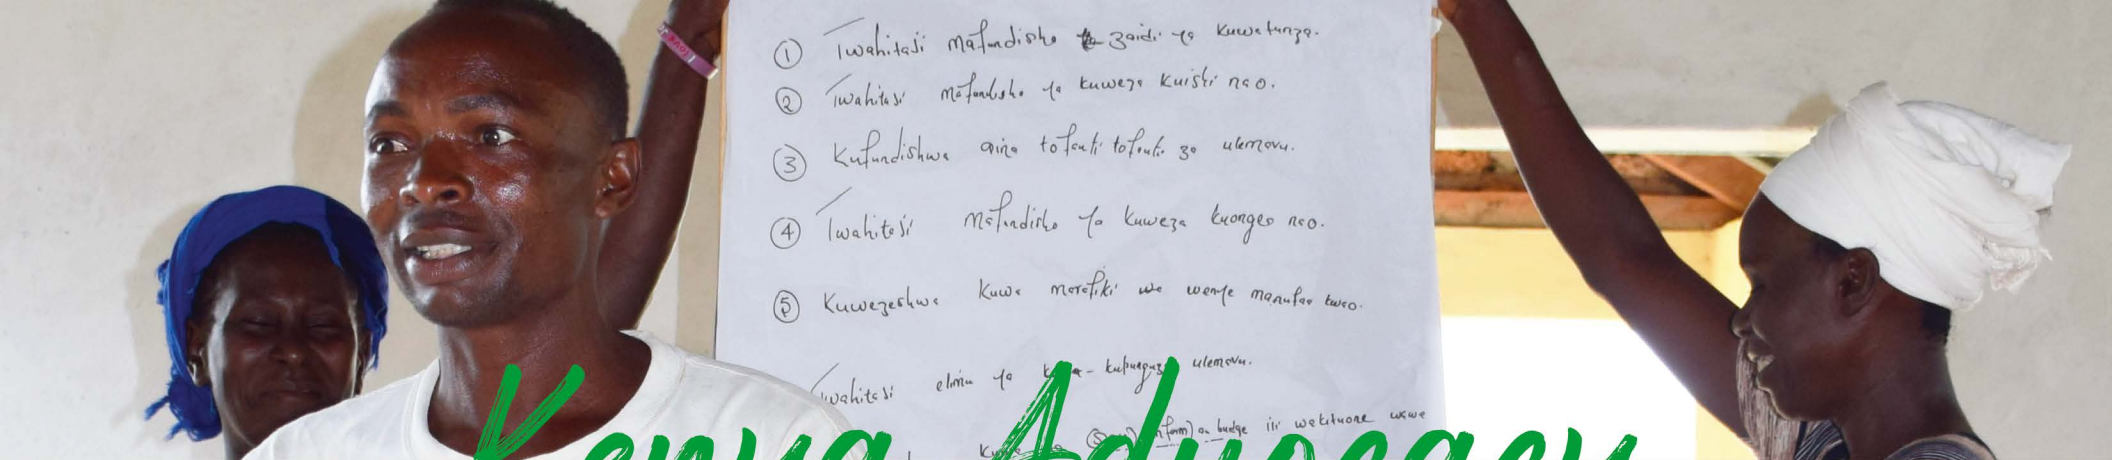 ① Twahitaji mafundisho zaidi ya kuwatunza.
② Twahitaji mafundisho ya kuweza kuishi nao.
③ Kufundishwa aina tofauti tofauti za ulemavu.
④ Twahitaji mafundisho ya kuweza kuongea nao.
⑤ Kuwezeshwa kuwa marafiki wa wenye manufaa kwao.
Twahitaji elimu ya kupunguza ulemavu.
form) au badge ili wakituona wawe
Kenya Advocacy